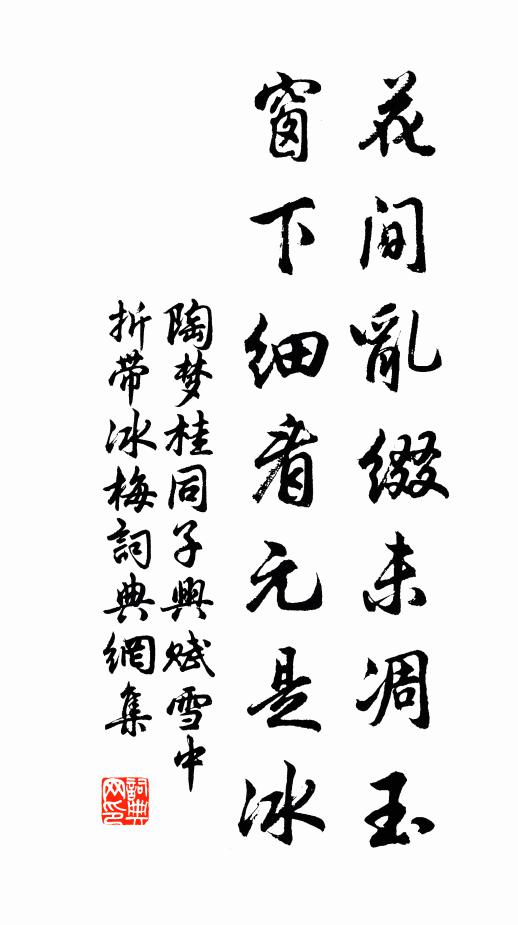 花間亂綴未凋玉
窗下細看元是冰
陶梦桂同子興赋雪中
折带冰梅詞典網集
詞典网印